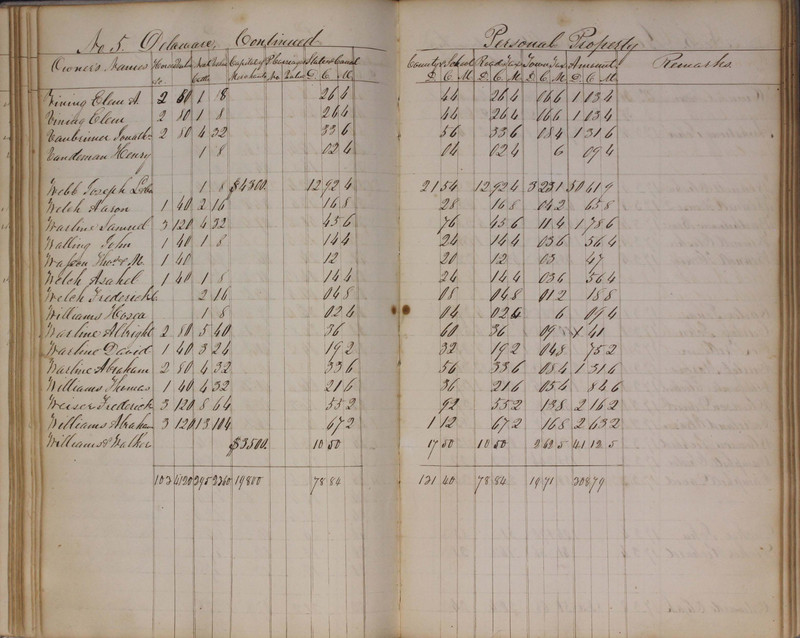 No 5. Delaware, Continued
Personal Property
Owner's Names Horses Value Neat Cattle Value Capital of Merchants Pleasure No Value State & Canal D. C. M. County & School D. C. M. Road Tax D. C. M. Town Tax D. C. M. Amount D. C. M. Remarks
Vining Elem A. 2 80 1 8 26 4 44 26 4 06 6 1 03 4
Vining Elem 2 80 1 8 26 4 44 26 4 06 6 1 03 4
Jonath 2 80 4 32 33 6 56 33 6 08 4 1 31 6
Vandeman Henry 1 8 02 4 04 02 4 6 09 4
Webb Joseph 1 8 $4300. 12 92 4 21 54 12 92 4 3 23 1 50 61 9
Welch Aaron 1 40 2 16 16 8 28 16 8 04 2 65 8
Warline Samuel 3 120 4 32 45 6 76 45 6 11 4 1 78 6
Walling John 1 40 1 8 14 4 24 14 4 03 6 56 4
1 40 12 20 12 03 47
Welch Asahel 1 40 1 8 14 4 24 14 4 03 6 56 4
Welch Frederick 2 16 04 8 08 04 8 01 2 18 8
Williams Hosea 1 8 02 4 04 02 4 6 09 4
Warline Albright 2 80 5 40 36 60 36 09 1 41
Warline David 1 40 3 24 19 2 32 19 2 04 8 75 2
Warline Abraham 2 80 4 32 33 6 56 33 6 08 4 1 31 6
Williams Thomas 1 40 4 32 21 6 36 21 6 05 4 84 6
Weiser Frederick 3 120 8 64 55 2 92 55 2 13 8 2 16 2
Williams Abraham 3 120 13 104 67 2 1 12 67 2 16 8 2 63 2
Williams & Walker $3500. 10 50 17 50 10 50 2 62 5 41 12 5
103 4120 295 2360 19800 78 84 131 40 78 84 19 71 308 79